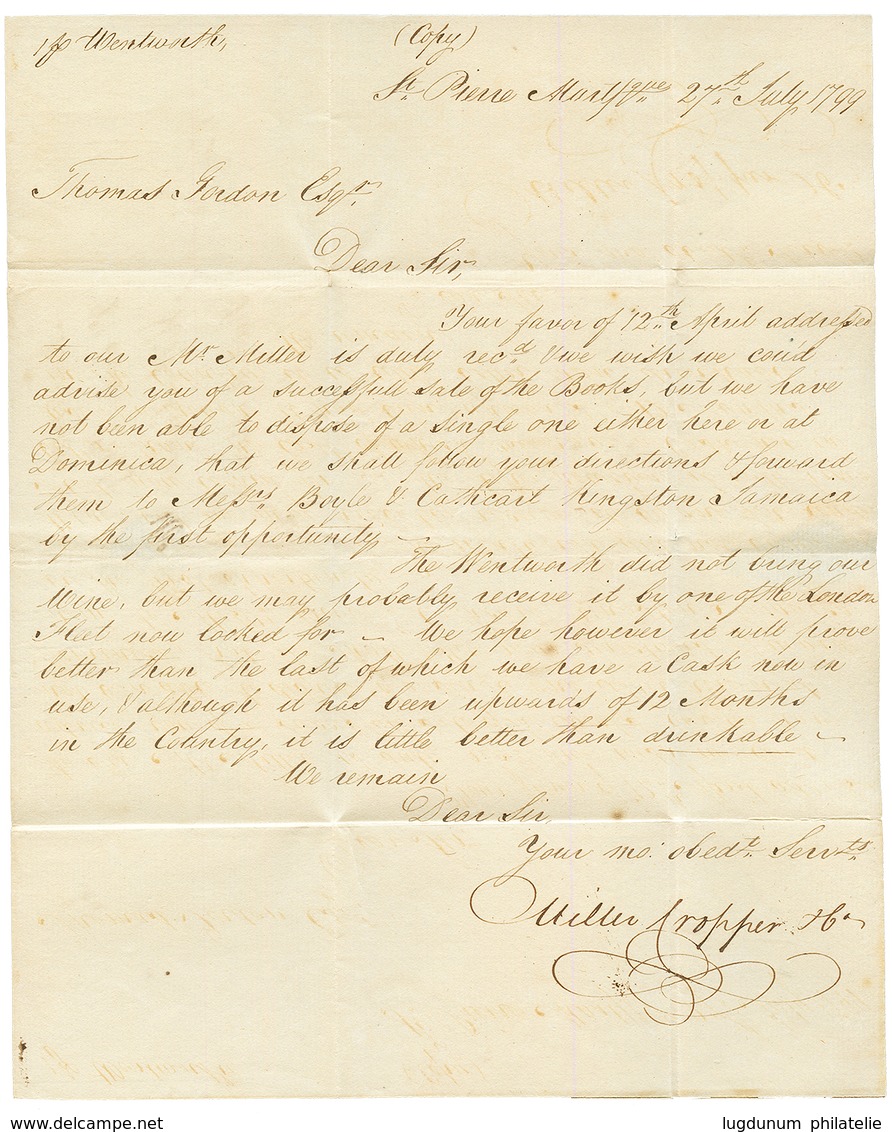 p Wentworth,
(Copy)
St. Pierre Mart/que 27th July 1799
Thomas Gordon Esqr.
Dear Sir,
Your favor of 12th April addressed
to our Mr. Miller is duly recd. & we wish we coud
advise you of a successfull sale of the Books, but we have
not been able to dispose of a single one either here or at
Dominica, that we shall follow your directions & forward
them to Messrs. Boyle & Cathcart Kingston Jamaica
by the first opportunity
The Wentworth did not bring our
Wine, but we may probably receive it by one of the London
Fleet now looked for — We hope however it will prove
better than the last of which we have a Cask now in
use, & although it has been upwards of 12 Months
in the Country, it is little better than drinkable —
We remain
Dear Sir,
Your mo: obedt. Servts.
Miller Cropper & Co
www.delcampe.net
lugdunum philatelie